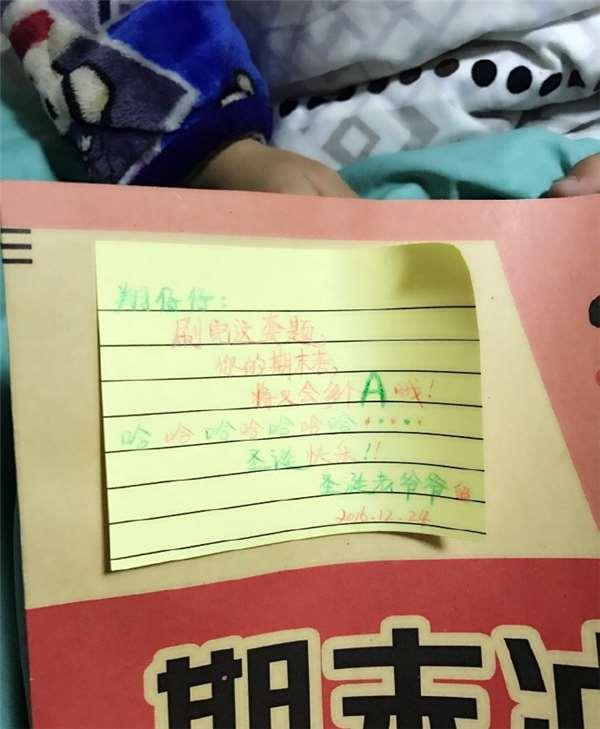 翔仔仔：
刷完这套题，
你的期末考，
将又会多个A哦！
哈哈哈哈哈哈哈……
圣诞快乐！！
圣诞老爷爷留
2016.12.24
期末冲